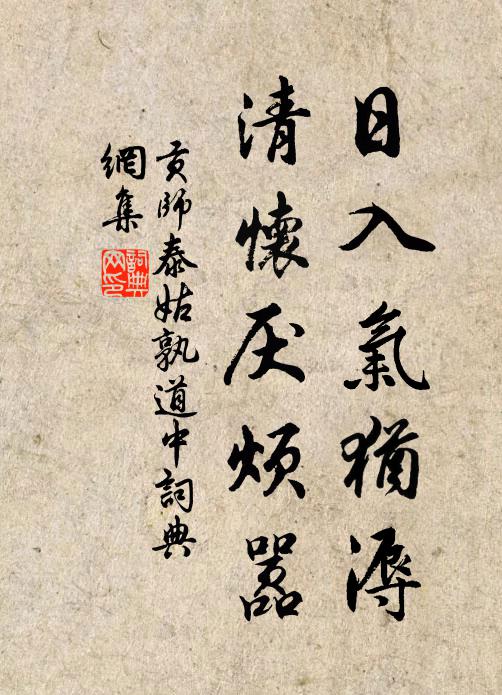 日入氣猶溽
清懷厭煩囂
貢師泰姑孰道中詞典
網集
詞典
网印